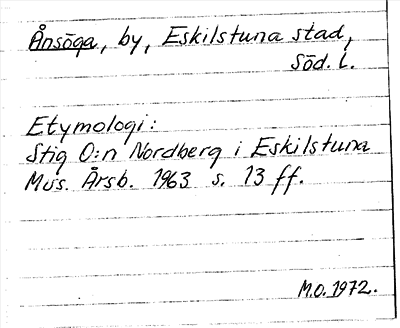 Ånsöga, by, Eskilstuna stad,
Söd. l.
Etymologi:
Stig O:n Nordberg i Eskilstuna
Mus. Årsb. 1963 s. 13 ff.
M.O. 1972.